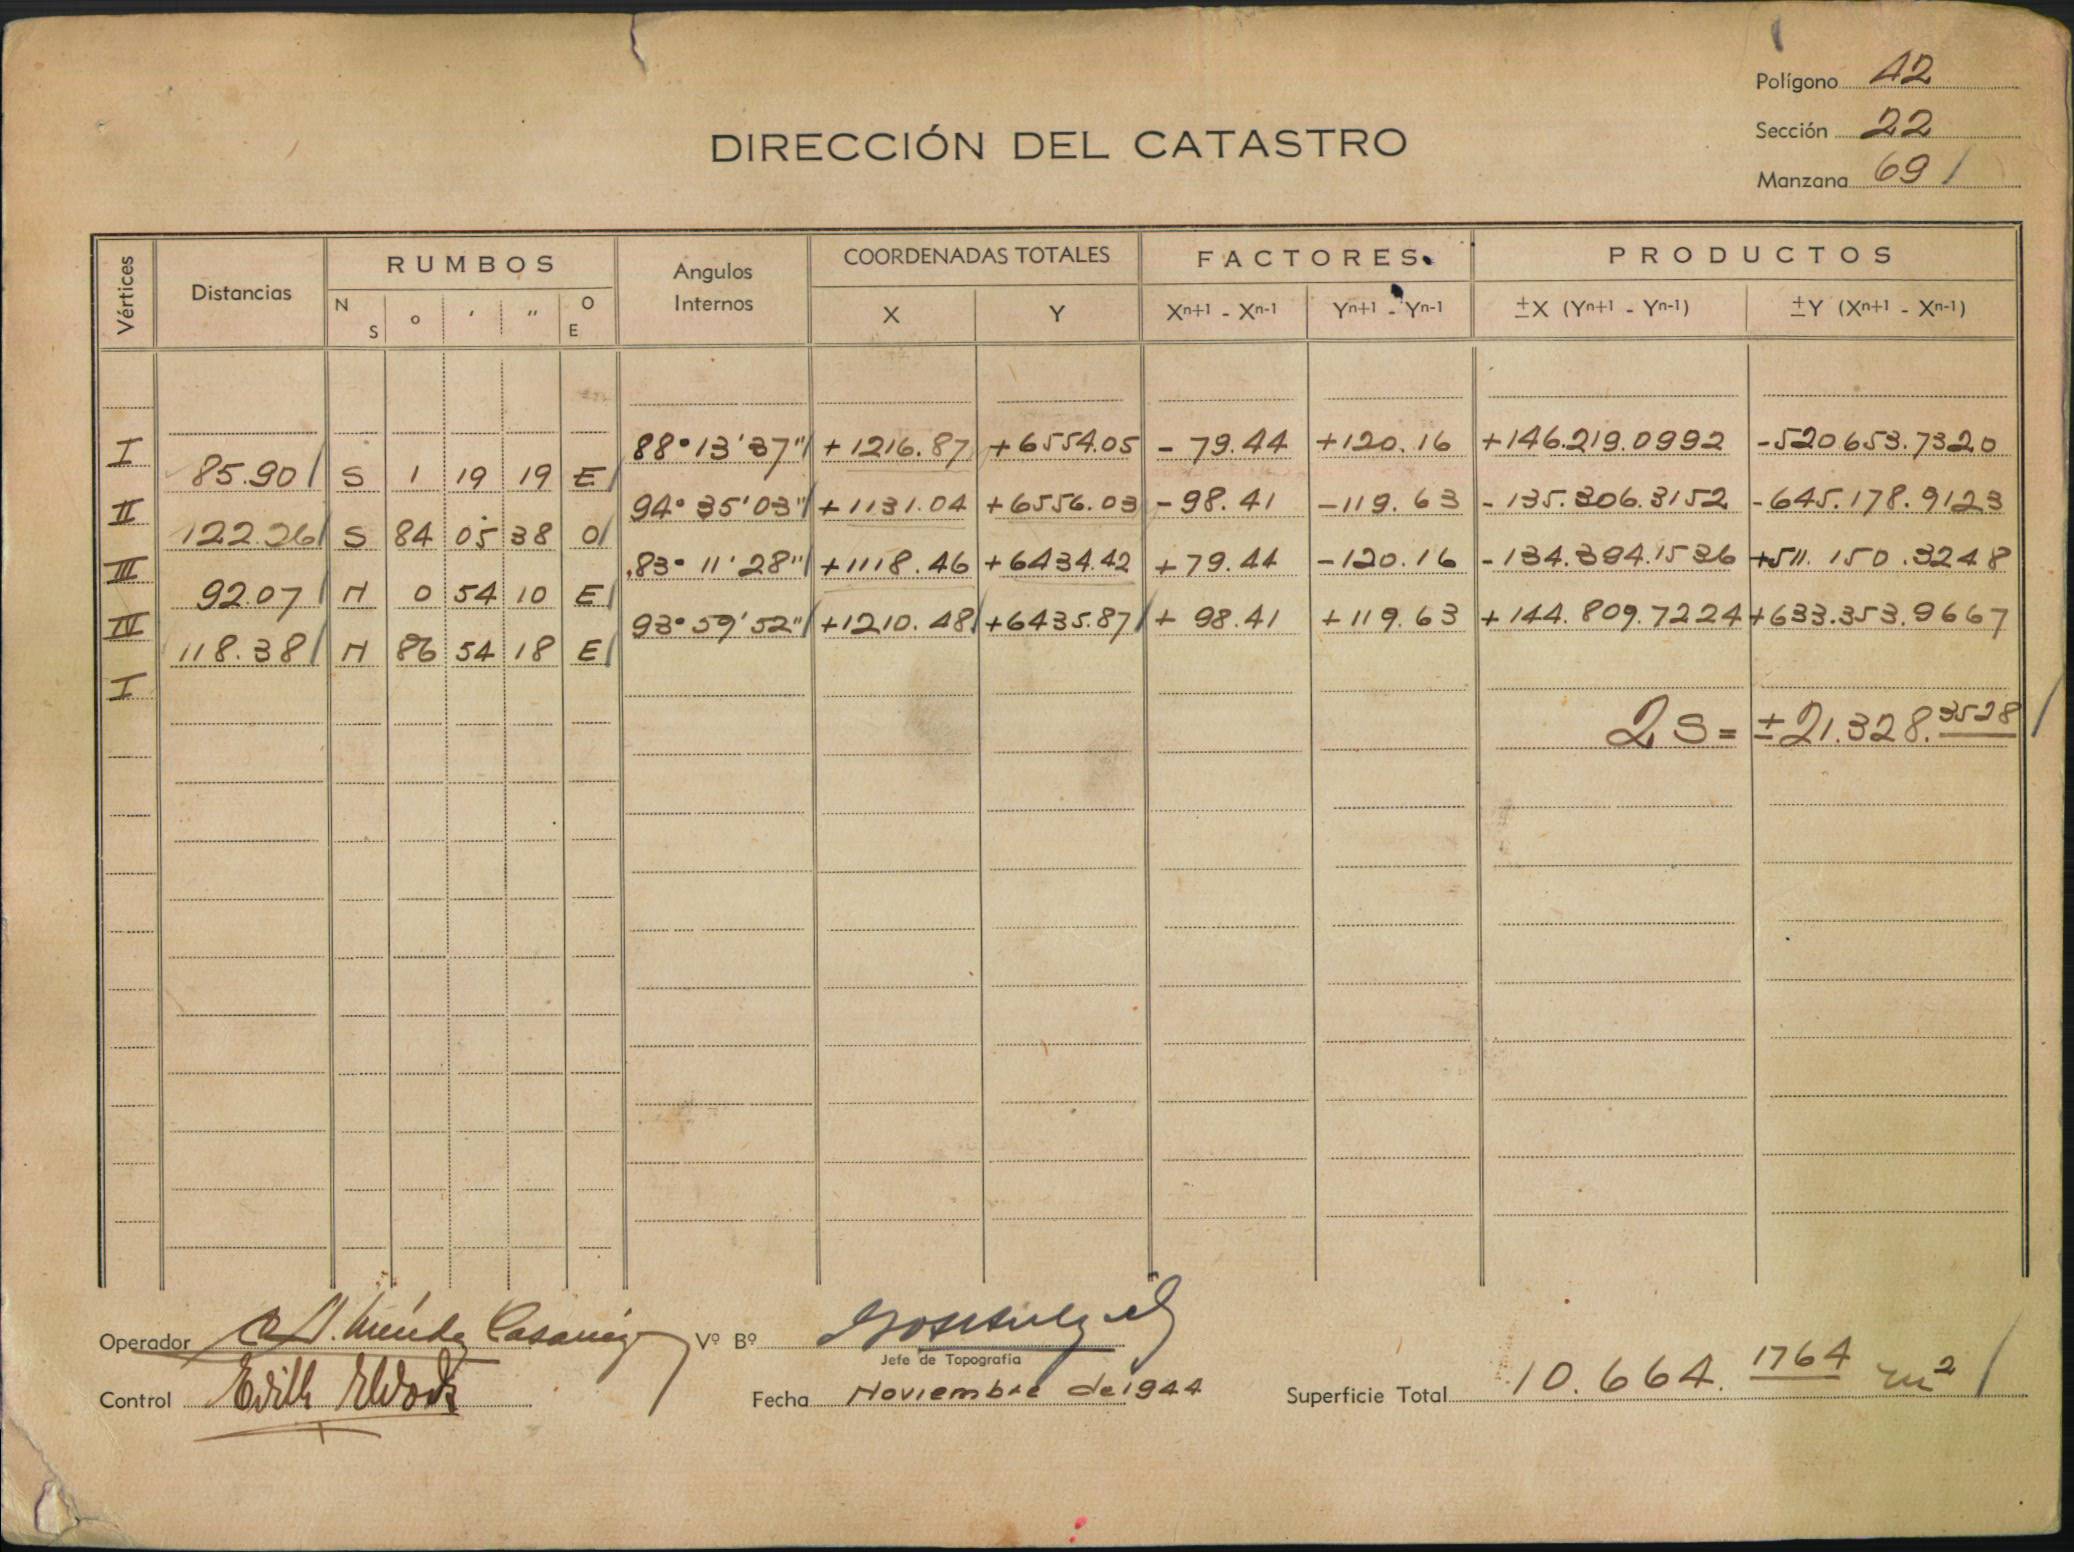 Polígono 42
Sección 22
Manzana 69 /
DIRECCIÓN DEL CATASTRO
Vértices Distancias RUMBOS Angulos Internos COORDENADAS TOTALES FACTORES. PRODUCTOS
N S o ' " O E X Y Xn+1 - Xn-1 Yn+1 - Yn-1 ±X (Yn+1 - Yn-1) ±Y (Xn+1 - Xn-1)
I 88°13'37" +1216.87 +6554.05 -79.44 +120.16 +146.219.0992 -520.653.7320
85.90 S 1 19 19 E
II 94°35'03" +1131.04 +6556.03 -98.41 -119.63 -135.306.3152 -645.178.9123
122.26 S 84 05 38 O
III 83°11'28" +1118.46 +6434.42 +79.44 -120.16 -134.394.1536 +511.150.3248
92.07 N 0 54 10 E
IV 93°59'52" +1210.48 +6435.87 +98.41 +119.63 +144.809.7224 +633.353.9667
118.38 N 86 54 18 E
I
2S= ±21.328.3528
Operador Méndez Vº Bº
Jefe de Topografía
Control Edith Fecha Noviembre de 1944 Superficie Total 10.664.1764 m²